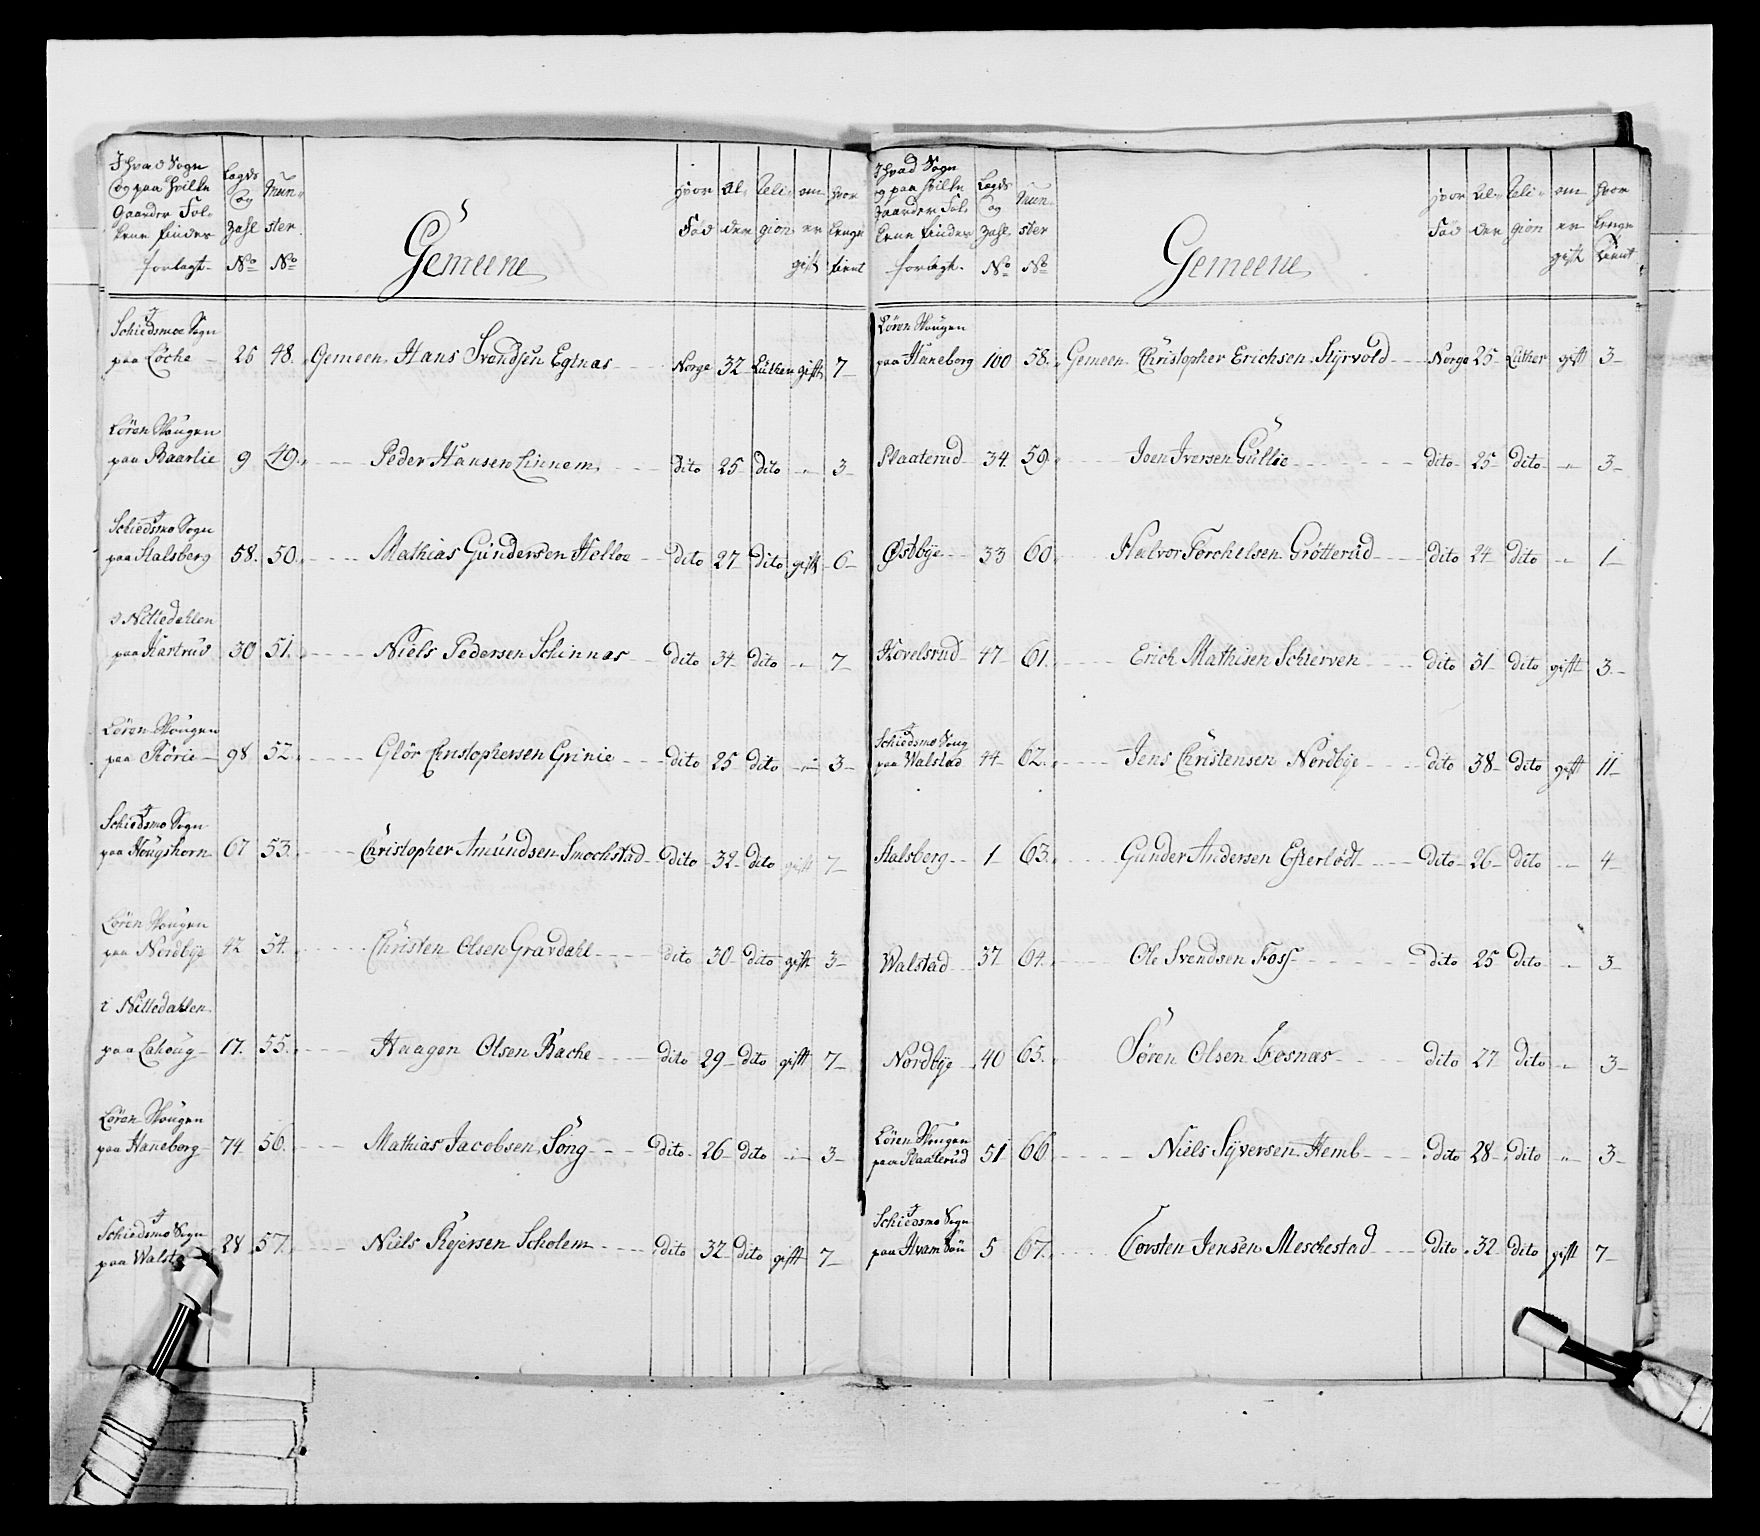 I hvad Sogn og paa hvilke Gaarder Folkene findes forlagt. Lægds og Zahl No Mun-ster No Gemeene Hvor Fød Al-der Reli-gion om er gift hvor lenge tient
Schiedsmoe Sogn
paa Löche 26 48. Gemeen. Hans Svendsen Egenas Norge 32 Luther gift 7
Lören Skougen
paa Baarlie 9 49. Peder Hansen Linnem dito 25 dito " 3
Schiedsmo Sogn
paa Stalsberg 58. 50. Mathias Gundersen Helloe dito 27 dito gift 6
i Nittedahlen
paa Kastrud 30 51. Niels Pedersen Schinnas dito 34 dito " 7
Lören Skougen
paa Rörie 98 52. Glör Christophersen Grinie dito 25 dito " 3
Schiedsmo Sogn
paa Hougshorn 67 53. Christopher Amundsen Smochstad dito 32 dito gift 7
Lören Skougen
paa Nordbye 42 54. Christen Olsen Gravdahl dito 30 dito gift 3
i Nittedahlen
paa Lahoug 17. 55. Haagen Olsen Bache dito 29 dito gift 7
Lören Skougen
paa Haneborg 74 56. Mathias Jacobsen Song dito 26 dito " 3
Schiedsmo Sogn
paa Walst 28 57. Niels Rejersen Scholem dito 32 dito gift 7
I hvad Sogn og paa hvilke Gaarder Folkene findes forlagt. Lægds og Zahl No Mun-ster No Gemeene Hvor Fød Al-der Reli-gion om er gift hvor lenge tient
Lören Skougen
paa Haneborg 100 58. Gemeen Christopher Erichsen Styrvold Norge 25 Luther gift 3
Plaaterud 34 59 Joen Iversen Gullie dito 25 dito " 3
Østbye 33 60 Halvor Torchelsen Grötterud dito 24 dito " 1
Hovelsrud 47 61. Erich Mathisen Schierven dito 31 dito gift 3
Schiedsmo Soug
paa Walstad 44 62. Jens Christensen Nordbye dito 38 dito gift 11
Stalsberg 1 63. Gunder Andersen Efterlödt dito 26 dito " 4
Walstad 37 64. Ole Svendsen Foss dito 25 dito " 3
Nordbye 40 65. Sören Olsen Fosnas dito 27 dito " 3
Lören Skougen
paa Plaaterud 51 66 Niels Syversen Hemb dito 28 dito " 3
Schiedsmo Sogn
paa Hvam Söu 5 67. Torsten Jensen Meschestad dito 32 dito gift 7